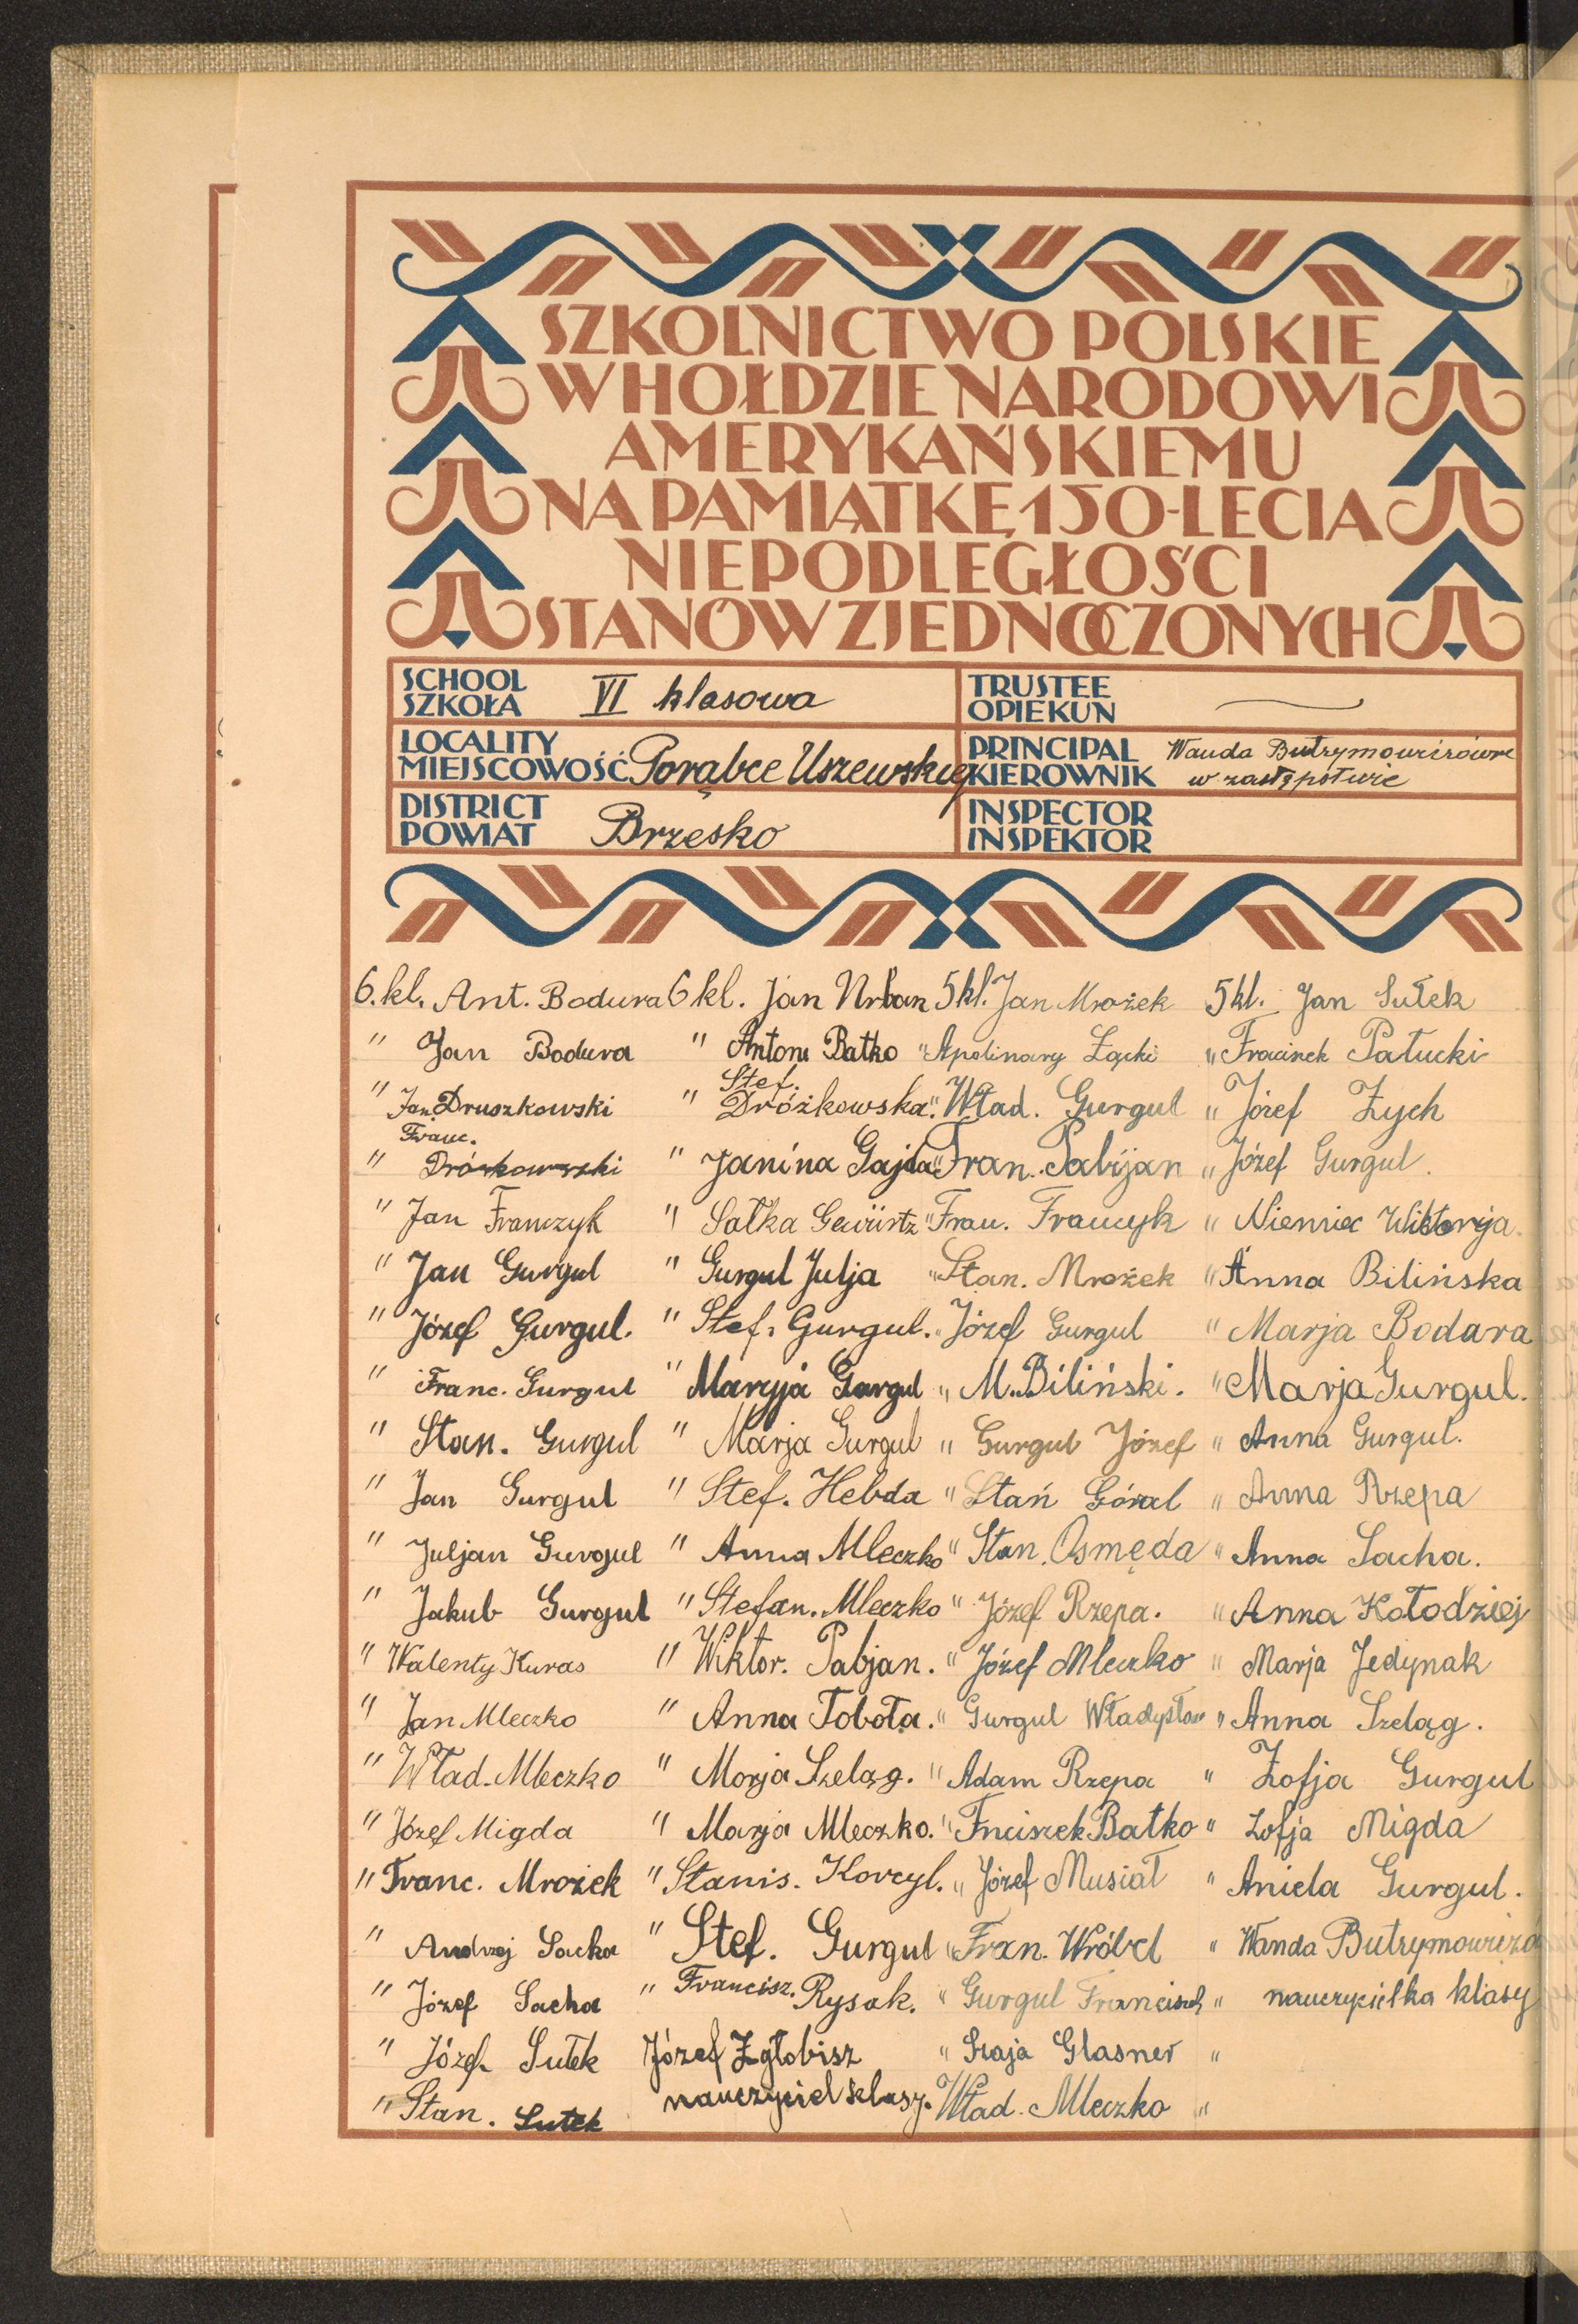 SZKOLNICTWO POLSKIE
W HOŁDZIE NARODOWI
AMERYKAŃSKIEMU
NA PAMIĄTKĘ 150-LECIA
NIEPODLEGŁOŚCI
STANÓW ZJEDNOCZONYCH
SCHOOL
SZKOŁA VI klasowa
TRUSTEE
OPIEKUN
LOCALITY
MIEJSCOWOŚĆ Porąbce Uszewskiej
PRINCIPAL
KIEROWNIK Wanda Butrymowiczówna
w zastępstwie
DISTRICT
POWIAT Brzesko
INSPECTOR
INSPEKTOR
6. kl. Ant. Bodura 6 kl. Jan Urban 5 kl. Jan Mrożek 5 kl. Jan Sułek
" Jan Bodura " Antoni Batko " Apolinary Łącki " Franciszek Pałucki
" Jan Druszkowski " Stef. Dróżkowska " Wład. Gurgul " Józef Zych
" Franc. Dróżkowski " Janina Gajda " Fran. Pabijan " Józef Gurgul.
" Jan Franczyk " Salka Gewürtz " Fran. Franczyk " Niemiec Wiktorja.
" Jan Gurgul " Gurgul Julja " Stan. Mrożek " Anna Bilińska
" Józef Gurgul. " Stef. Gurgul. " Józef Gurgul " Marja Bodara
" Franc. Gurgul " Maryja Gurgul " M. Biliński. " Marja Gurgul.
" Stan. Gurgul " Marja Gurgul " Gurgul Józef " Anna Gurgul.
" Jan Gurgul " Stef. Hebda " Stań Góral " Anna Rzepa
" Juljan Gurgul " Anna Mleczko " Stan. Osmęda " Anna Sacha.
" Jakub Gurgul " Stefan. Mleczko " Józef Rzepa. " Anna Kołodziej
" Walenty Kuras " Wiktor. Pabjan. " Józef Mleczko " Marja Jedynak
" Jan Mleczko " Anna Toboła. " Gurgul Władysław " Anna Szeląg.
" Wład. Mleczko " Marja Szeląg. " Adam Rzepa " Zofja Gurgul
" Józef Migda " Marja Mleczko. " Fnciszek Batko " Zofja Migda
" Franc. Mrożek " Stanis. Korcyl. " Józef Musiał " Aniela Gurgul.
" Andrzej Sacha " Stef. Gurgul " Fran. Wróbel " Wanda Butrymowiczó
" Józef Sacha " Francisz. Rysak. " Gurgul Franciszek " nauczycielka klasy
" Józef Sułek Józef Zgłobisz " Szaja Glasner "
" Stan. Sułek nauczyciel klasy. Wład. Mleczko "